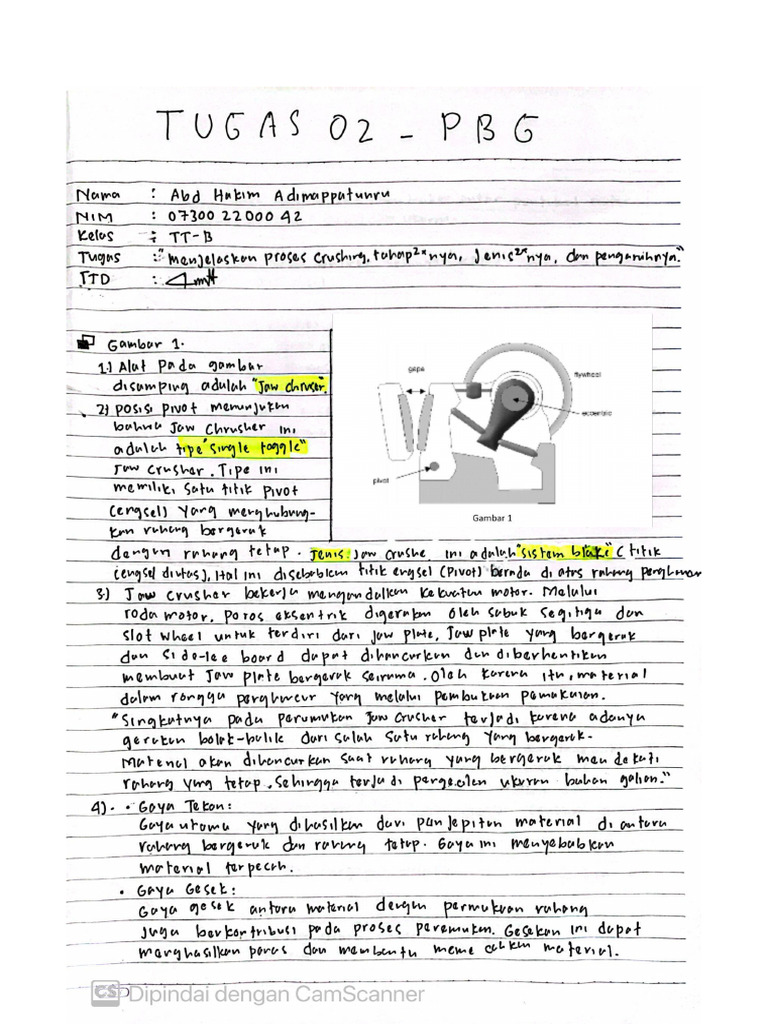 TUGAS 02 - PBG
Nama : Abd Hakim Adimappatunru
NIM : 07300 22000 42
Kelas : TT-B
Tugas : "menjelaskan proses crushing, tahap2x nya, jenis2x nya, dan pengaruhnya."
TTD :
Gambar 1.
1.) Alat Pada gambar
disamping adalah "Jaw chruser".
2) posisi pivot menunjukan
bahwa Jaw Chrusher ini
adalah tipe "single toggle"
Jaw crusher. Tipe ini
memiliki satu titik pivot
(engsel) yang menghubung-
kan rahang bergerak
gape
flywheel
eccentric
pivot
Gambar 1
dengan rahang tetap. Jenis Jaw crushe ini adalah "sistem blake" (titik
(engsel diatas), Hal ini disebabkan titik engsel (Pivot) berada di atas rahang penghancur
3.) Jaw crusher bekerja mengandalkan kekuatan motor. Melalui
roda motor, poros eksentrik digerakan oleh sabuk segitiga dan
slot wheel untuk terdiri dari jaw plate, Jaw plate yang bergerak
dan side-lee board dapat dihancurkan dan diberhentikan
membuat Jaw plate bergerak seirama. Oleh karena itu, material
dalam rongga penghancur yang melalui pembukaan pemakaian.
"Singkatnya pada perumukan Jaw crusher terjadi karena adanya
gerakan bolak-balik dari salah satu rahang yang bergerak.
Material akan dihancurkan saat rahang yang bergerak mendekati
rahang yang tetap. Sehingga terjadi pengecilan ukuran bahan galian."
4). • Gaya Tekan:
Gaya utama yang dihasilkan dari penjepitan material di antara
rahang bergerak dan rahang tetap. Gaya ini menyebabkan
material terpecah.
• Gaya Gesek:
Gaya gesek antara material dengan permukaan rahang
juga berkontribusi pada proses peremukan. Gesekan ini dapat
menghasilkan panas dan membantu memecahkan material.
CS Dipindai dengan CamScanner